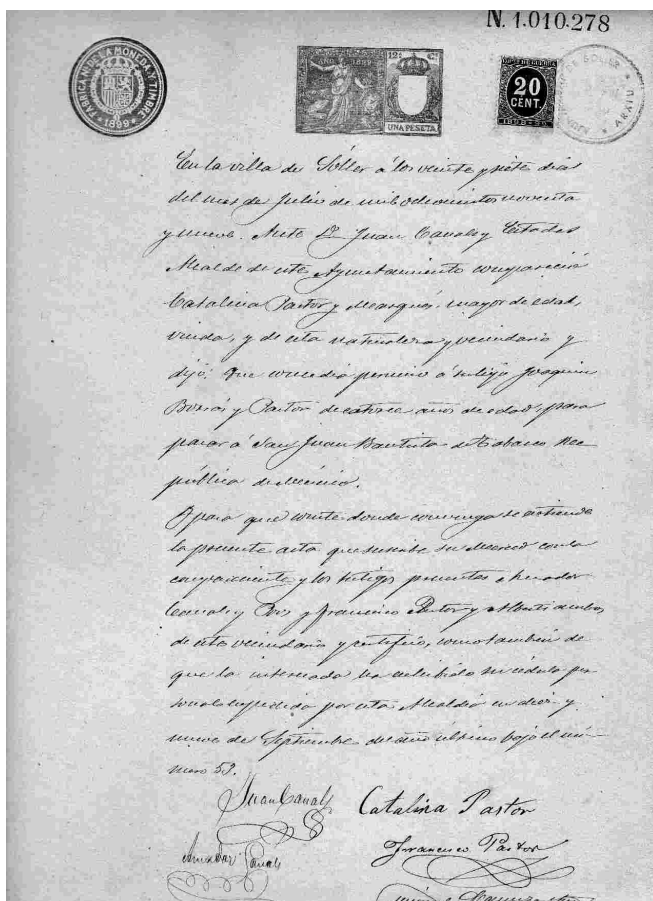 N. 1.010.278
FABRICA N. DE LA MONEDA Y TIMBRE
1899
AÑO 1899
12ª Cª
UNA PESETA
20
CENT.
En la villa de Sóller á los veinte y siete dia
del mes de Julio de mil ochocientos noventa
y nueve. Ante D. Juan Canals y Estades
Alcalde de este Ayuntamiento compareció
Catalina Pastor y Marqués, mayor de edad,
viuda, y de esta naturaleza y vecindario y
dijo: Que concedia permiso á su hijo Joaquin
Borrás y Pastor de catorce años de edad, para
pasar á San Juan Bautista de Tabasco Re
pública de México.
Y para que conste donde convenga se extiende
la presente acta que suscribe su Merced con la
compareciente y los testigos presentes Amador
Canals y Pons y Francisco Pastor y ambos
de este vecindario y certifico, como tambien de
que la interesada ha exhibido su cédula per
sonal expedida por esta Alcaldia en diez y
nueve de Septiembre del año último bajo el nú-
mero 59.
Juan Canals
Catalina Pastor
Amador Canals
Francisco Pastor